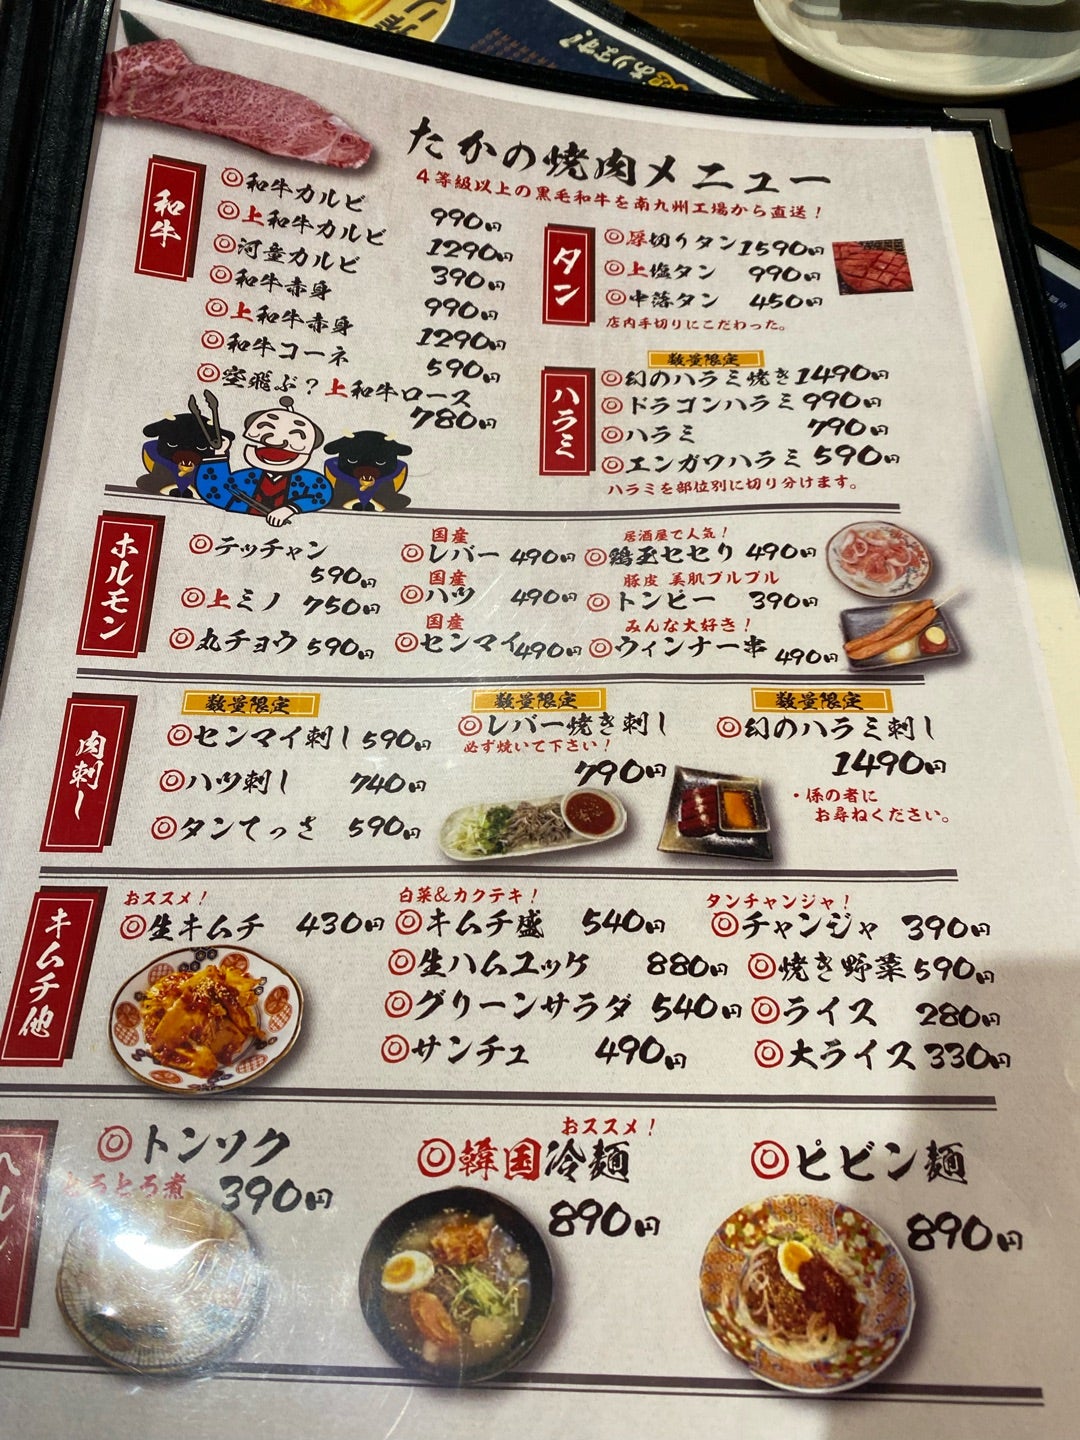 たかの焼肉メニュー
4等級以上の黒毛和牛を南九州工場から直送！
和牛
◎和牛カルビ 990円
◎上和牛カルビ 1290円
◎河童カルビ 390円
◎和牛赤身 990円
◎上和牛赤身 1290円
◎和牛コーネ 590円
◎空飛ぶ？上和牛ロース
780円
タン
◎厚切りタン 1590円
◎上塩タン 990円
◎中落タン 450円
店内手切りにこだわった。
ハラミ
数量限定
◎幻のハラミ焼き 1490円
◎ドラゴンハラミ 990円
◎ハラミ 790円
◎エンガワハラミ 590円
ハラミを部位別に切り分けます。
ホルモン
◎テッチャン
590円
◎上ミノ 750円
◎丸チョウ 590円
国産
◎レバー 490円
国産
◎ハツ 490円
国産
◎センマイ 490円
居酒屋で人気！
◎鶏玉セセリ 490円
豚皮 美肌プルプル
◎トンピー 390円
みんな大好き！
◎ウィンナー串 490円
肉刺し
数量限定
◎センマイ刺し 590円
◎ハツ刺し 740円
◎タンてっさ 590円
数量限定
◎レバー焼き刺し
必ず焼いて下さい！
790円
数量限定
◎幻のハラミ刺し
1490円
・係の者に
お尋ねください。
キムチ他
おススメ！
◎生キムチ 430円
白菜&カクテキ！
◎キムチ盛 540円
◎生ハムユッケ 880円
◎グリーンサラダ 540円
◎サンチュ 490円
タンチャンジャ！
◎チャンジャ 390円
◎焼き野菜 590円
◎ライス 280円
◎大ライス 330円
◎トンソク
とろとろ煮 390円
おススメ！
◎韓国冷麺
890円
◎ピビン麺
890円
あります！